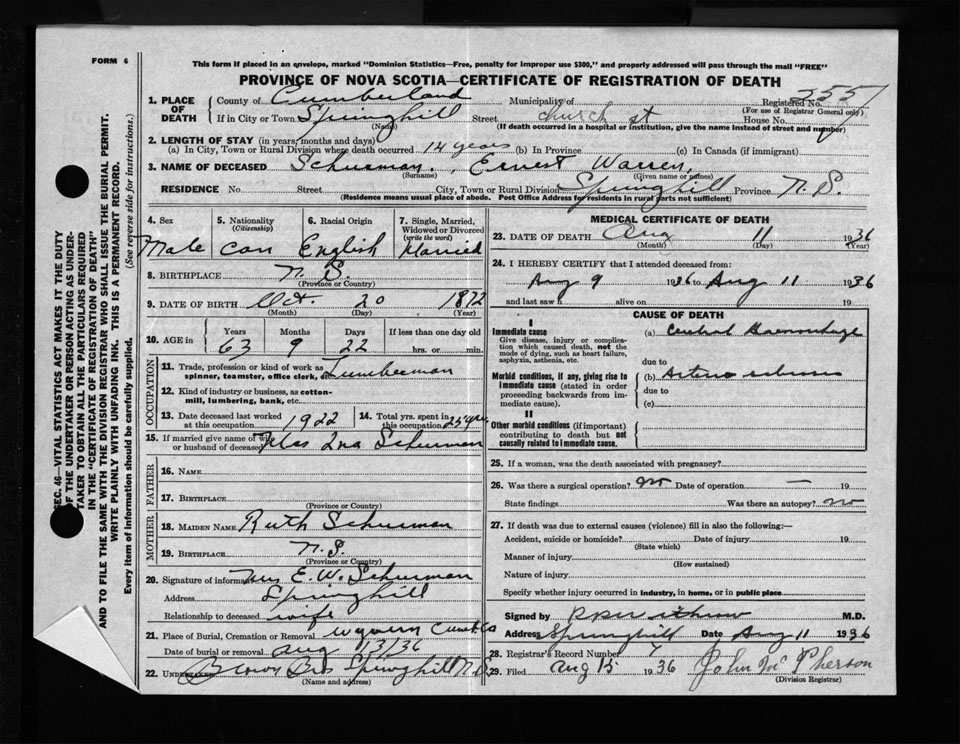 FORM 6
This form if placed in an envelope, marked "Dominion Statistics—Free, penalty for improper use $300," and properly addressed will pass through the mail "FREE"
PROVINCE OF NOVA SCOTIA—CERTIFICATE OF REGISTRATION OF DEATH
SEC. 46—VITAL STATISTICS ACT MAKES IT THE DUTY
OF THE UNDERTAKER OR PERSON ACTING AS UNDER-
TAKER TO OBTAIN ALL THE PARTICULARS REQUIRED
IN THE "CERTIFICATE OF REGISTRATION OF DEATH"
AND TO FILE THE SAME WITH THE DIVISION REGISTRAR WHO SHALL ISSUE THE BURIAL PERMIT.
WRITE PLAINLY WITH UNFADING INK. THIS IS A PERMANENT RECORD.
Every item of information should be carefully supplied. (See reverse side for instructions.)
1. PLACE OF DEATH
County of Cumberland Municipality of Registered No. 2557
(For use of Registrar General only)
If in City or Town Springhill Street church st House No.
(Name) (If death occurred in a hospital or institution, give the name instead of street and number)
2. LENGTH OF STAY (in years, months and days)
(a) In City, Town or Rural Division where death occurred 14 years (b) In Province (c) In Canada (if immigrant)
3. NAME OF DECEASED Schurman, Ernest Warren,
(Surname) (Given name or names)
RESIDENCE No Street City, Town or Rural Division Springhill Province N.S.
(Residence means usual place of abode. Post Office Address for residents in rural parts not sufficient)
4. Sex Male
5. Nationality (Citizenship) Can
6. Racial Origin English
7. Single, Married, Widowed or Divorced (write the word) Married
8. BIRTHPLACE N.S.
(Province or Country)
9. DATE OF BIRTH Oct. 20 1872
(Month) (Day) (Year)
10. AGE in Years 63 Months 9 Days 22 If less than one day old hrs. or min.
OCCUPATION
11. Trade, profession or kind of work as spinner, teamster, office clerk, etc. Lumberman
12. Kind of industry or business, as cotton-mill, lumbering, bank, etc.
13. Date deceased last worked at this occupation 1922
14. Total yrs. spent in this occupation 25 yrs.
15. If married give name of wife or husband of deceased Ina Schurman
FATHER
16. NAME
17. BIRTHPLACE
(Province or Country)
MOTHER
18. MAIDEN NAME Ruth Schurman
19. BIRTHPLACE N.S.
(Province or Country)
20. Signature of informant Mrs E. W. Schurman
Address Springhill
Relationship to deceased wife
21. Place of Burial, Cremation or Removal
Date of burial or removal Aug 13/36
22. UNDERTAKER Brown Bros Springhill N.S.
(Name and address)
MEDICAL CERTIFICATE OF DEATH
23. DATE OF DEATH Aug 11 1936
(Month) (Day) (Year)
24. I HEREBY CERTIFY that I attended deceased from:
Aug 9 1936 to Aug 11 1936
and last saw h alive on 19
CAUSE OF DEATH
I
Immediate cause
Give disease, injury or complication which caused death, not the mode of dying, such as heart failure, asphyxia, asthenia, etc.
(a) Cerebral Haemorrhage
due to
Morbid conditions, if any, giving rise to immediate cause (stated in order proceeding backwards from immediate cause).
(b) Arterio sclerosis
due to
(c)
II
Other morbid conditions (if important) contributing to death but not causally related to immediate cause.
25. If a woman, was the death associated with pregnancy?
26. Was there a surgical operation? no Date of operation —
State findings Was there an autopsy? no
27. If death was due to external causes (violence) fill in also the following:—
Accident, suicide or homicide? Date of injury 19
(State which)
Manner of injury
(How sustained)
Nature of injury
Specify whether injury occurred in industry, in home, or in public place
Signed by M.D.
Address Springhill Date Aug 11 1936
28. Registrar's Record Number 7
29. Filed Aug 15 1936 John McPherson
(Division Registrar)